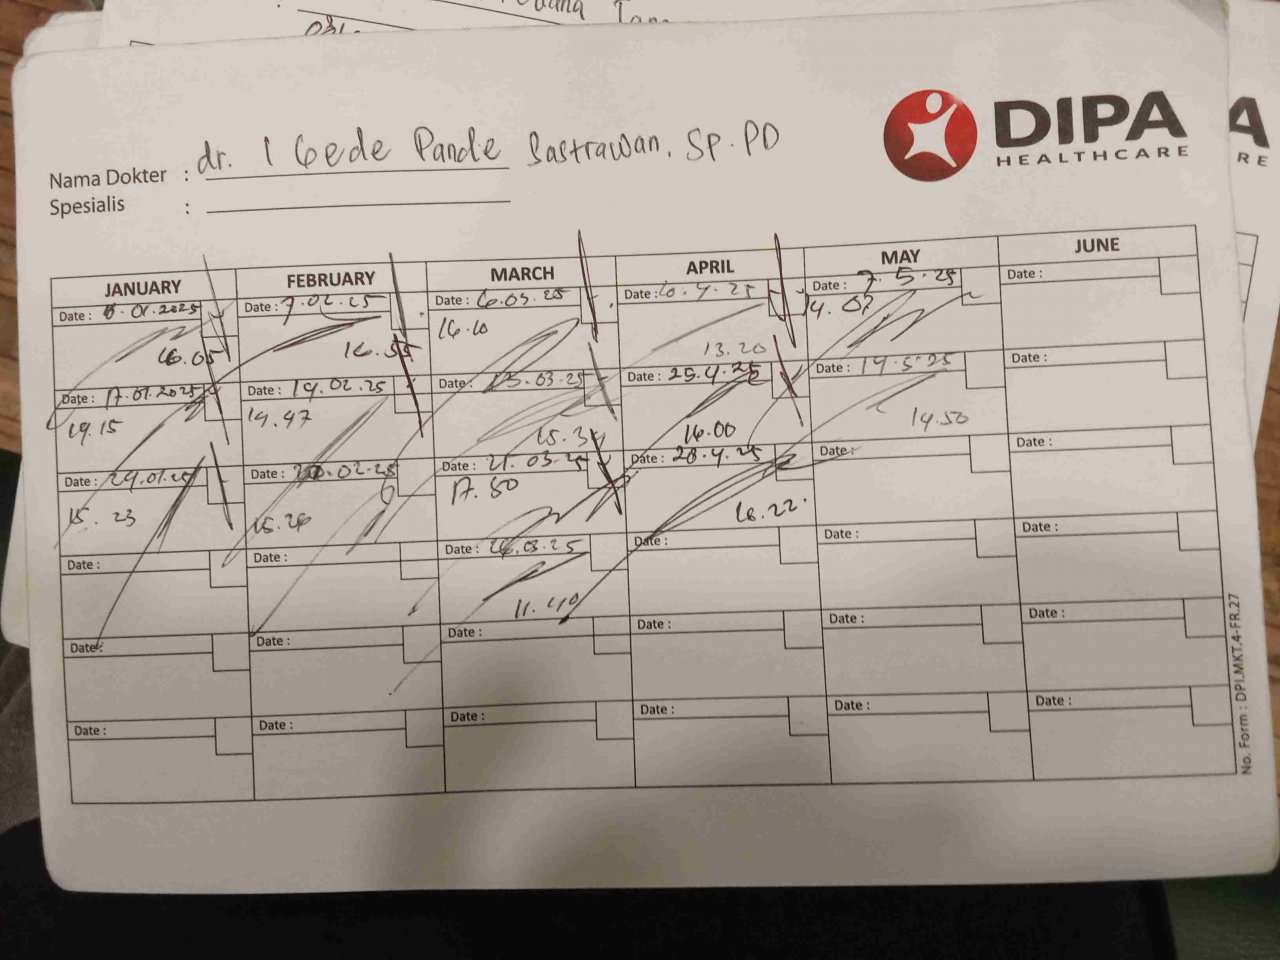 DIPA
HEALTHCARE
Nama Dokter : dr. I Gede Pande Sastrawan, Sp.PD
Spesialis :
JANUARY FEBRUARY MARCH APRIL MAY JUNE
Date : 6.01.2025 Date : 7.02.25 Date : 6.03.25 Date : 10.4.25 Date : 7.5.25 Date :
16.05 16.55 16.10 13.20 14.07
Date : 17.01.2025 Date : 14.02.25 Date : 13.03.25 Date : 25.4.25 Date : 19.5.25 Date :
19.15 14.47 16.00 14.50
Date : 24.01.25 Date : Date : 21.03.25 Date : 28.4.25 Date : Date :
15.23 15.26 17.50 16.22
Date : Date : Date : 26.03.25 Date : Date : Date :
11.40
Date : Date : Date : Date : Date : Date :
Date : Date : Date : Date : Date : Date :
No. Form : DPI.MKT.4-FR.27